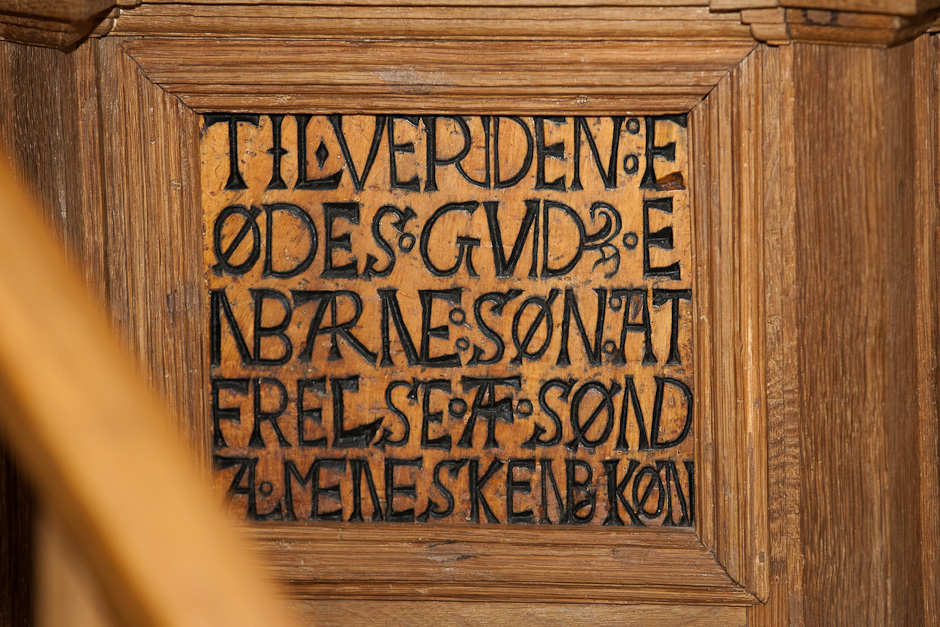 TIL◆VERDEN : F
ØDES : GUDZ : E
NBARNE : SØN : AT
FRELSE ∘ AF ∘ SØND
AL : MENESKENS KØN